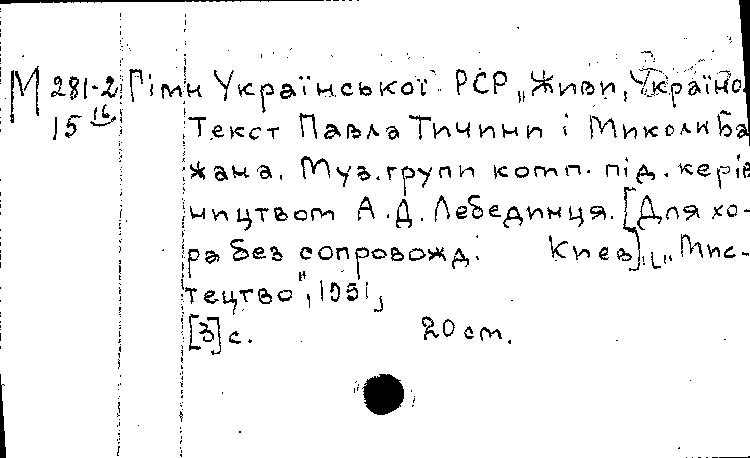 М 281-2 Гімн Української РСР „Живи, Україно.
15 16 Текст Павла Тичини і Миколи Ба
жана. Муз. групи комп. під. керів
ництвом А.Д. Лебединця. [Для хо-
ра без сопровожд. Киев], „Мис-
тецтво", 1951,
[3] с. 20 cm.